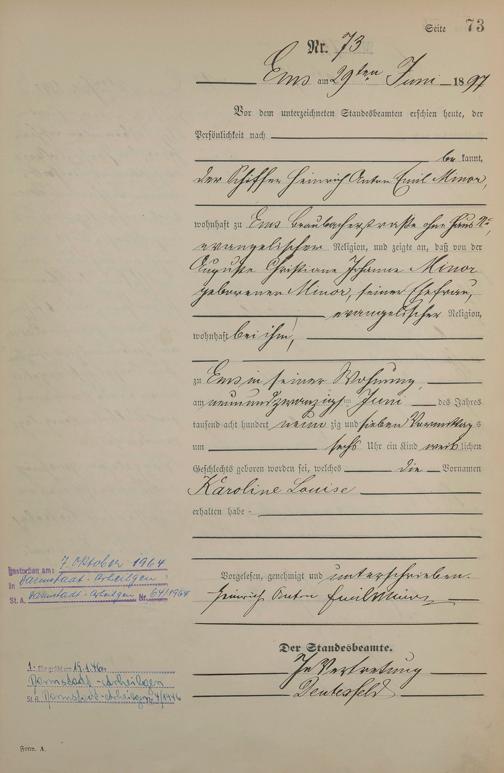 Seite 73
Nr. 73
Ems am 29ten Juni 1897
Vor dem unterzeichneten Standesbeamten erschien heute, der
Persönlichkeit nach
bekannt,
der Schiffer Heinrich Anton Emil Minor,
wohnhaft zu Ems Braubacherstraße ohne Haus No,
evangelischer Religion, und zeigte an, daß von der
Auguste Christiane Johanne Minor
geborenen Minor, seiner Ehefrau,
evangelischer Religion,
wohnhaft bei ihm,
zu Ems in seiner Wohnung
am neunundzwanzigsten Juni des Jahres
tausend acht hundert neunzig und sieben Vormittags
um sechs Uhr ein Kind weiblichen
Geschlechts geboren worden sei, welches die Vornamen
Karoline Louise
erhalten habe
Vorgelesen, genehmigt und unterschrieben
Heinrich Anton Emil Minor
Der Standesbeamte.
In Vertretung
Gestorben am: 7. Oktober 1964
in Darmstadt-Arheilgen
St. A. Darmstadt-Arheilgen Nr. 64/1964
1. 19.1.46
Darmstadt-Arheilgen
St. A. Darmstadt-Arheilgen 4/1946
Form. A.